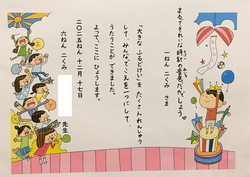 まるできれいな時計の音色だったでしょう
一ねん 二くみ さま
「大きな ふるどけい」を たくさんれんしゅう
して、みんなで こえを 一つにして
うたうことが できました。
よって、ここに ひょうします。
二〇二五ねん 十二月 十七日
六ねん 二くみ
先生